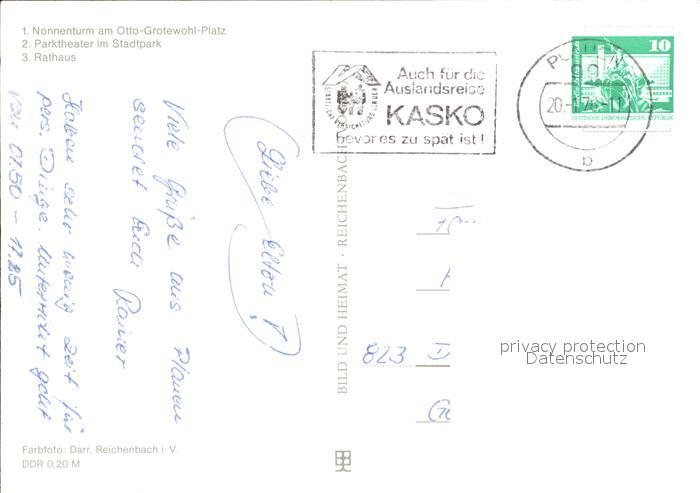 1. Nonnenturm am Otto-Grotewohl-Platz
2. Parktheater im Stadtpark
3. Rathaus
Auch für die
Auslandsreise
KASKO
bevor es zu spät ist!
STAATLICHE VERSICHERUNG DER DDR
PLAUEN
20
76
b
10
DEUTSCHE DEMOKRATISCHE REPUBLIK
Liebe Eltern!
Viele Grüße aus Plauen
sendet Euch Rainer
Haben sehr wenig Zeit für
pers. Dinge. Unterricht geht
von 07.50 - 17.25
BILD UND HEIMAT · REICHENBACH
823 D
privacy protection
Datenschutz
Farbfoto: Darr, Reichenbach i. V.
DDR 0,20 M